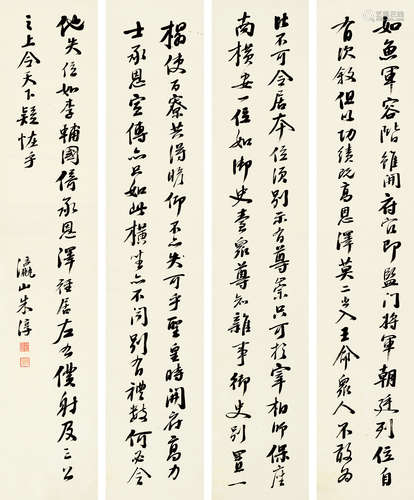 如魚軍容階雖開府官即監門將軍朝廷列位自
有次敘但以功績既高恩澤莫二出入王命眾人不敢為
比不可令居本位須別示有尊崇只可於宰相師保座
南橫安一位如御史臺眾尊知雜事御史別置一
榻使百寮共得瞻仰不亦可乎聖皇時開府高力
士承恩宣傳亦只如此橫坐亦不聞別有禮數何必令
他失位如李輔國倚承恩澤徑居左右僕射及三公
之上令天下疑怪乎
瀛山朱淳